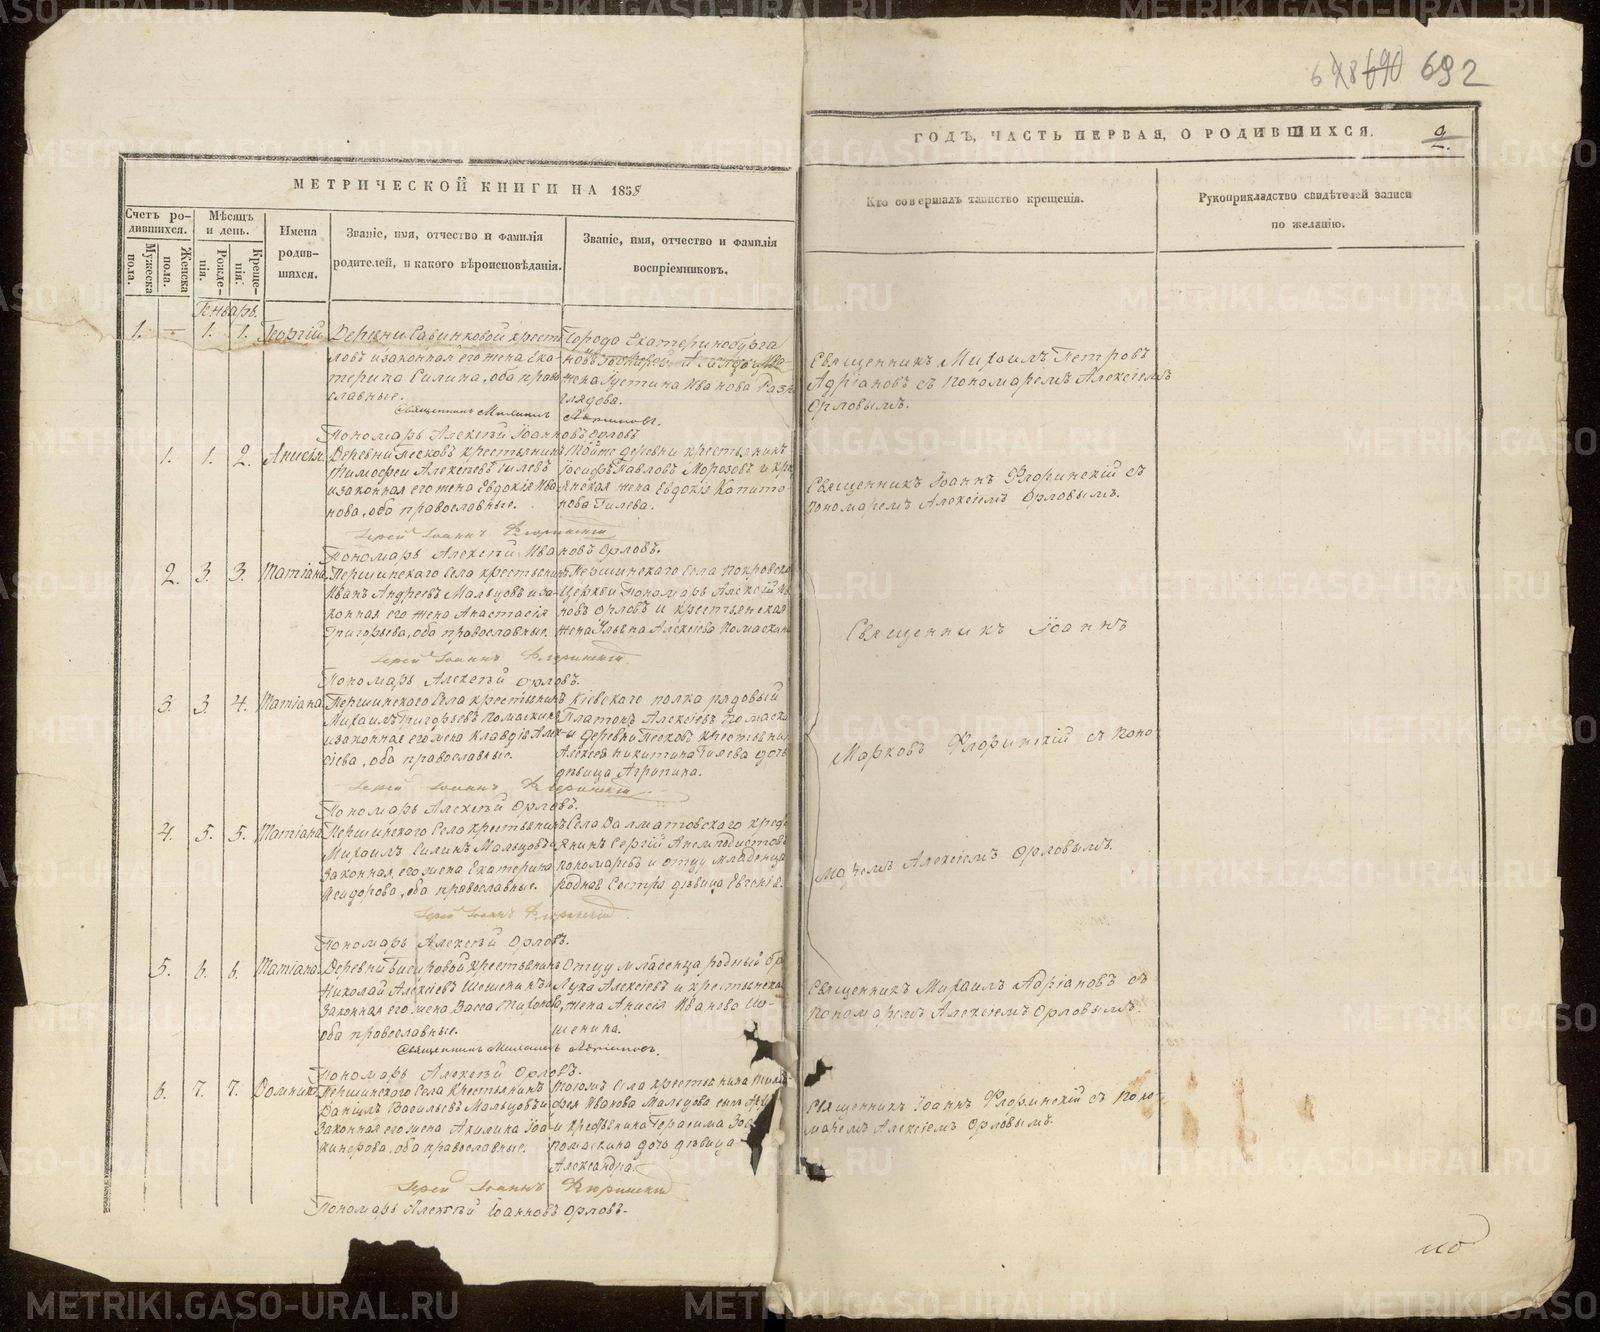 692
МЕТРИЧЕСКОЙ КНИГИ НА 1858
ГОДЪ, ЧАСТЬ ПЕРВАЯ, О РОДИВШИХСЯ.
Счетъ родившихся.
Мужеска пола.
Женска пола.
Мѣсяцъ и день.
Рожденія.
Крещенія.
Имена родившихся.
Званіе, имя, отчество и фамилія
родителей, и какого вѣроисповѣданія.
Званіе, имя, отчество и фамилія
воспріемниковъ.
Кто совершалъ таинство крещенія.
Рукоприкладство свидѣтелей записи
по желанію.
Январь.
1. — 1. 1. Георгій
Деревни Савинковой крест
ловъ и законная его жена Ека-
терина Силина, оба право
славные.
Города Екатеринбурга
жена Густина Иванова
Священникъ Михаилъ Петровъ
Адріановъ съ пономаремъ Алексіемъ
Орловымъ.
Священникъ Михаилъ Адріановъ.
Пономарь Алексѣй Іоанновъ Орловъ
1. 1. 2. Анисія
Деревни Песковъ крестьянинъ
Тимофей Алексѣевъ Гилевъ
и законная его жена Евдокія Ива
нова, оба православные.
Тойже деревни крестьянинъ
Іосифъ Павловъ Морозовъ и кре
янская жена Евдокія Капито-
нова Гилева.
Священникъ Іоаннъ Флоринскій съ
пономаремъ Алексіемъ Орловымъ.
Іерей Іоаннъ Флоринскій
Пономарь Алексѣй Ивановъ Орловъ.
2. 3. 3. Татіана
Першинскаго Села крестьянинъ
Иванъ Андреевъ Мальцовъ и за-
конная его жена Анастасія
Григорьева, оба православные.
Першинскаго Села Покровско
Церкви Пономарь Алексѣй Ив
новъ Орловъ и крестьянская
жена Ульяна Алексѣева Помаскина
Священникъ Іоаннъ
Іерей Іоаннъ Флоринскій.
Пономарь Алексѣй Орловъ.
3. 3. 4. Татіана
Першинскаго Села крестьянинъ
Михаилъ Григорьевъ Помаскинъ
и законная его жена Клавдія Алек-
сіева, оба православные.
Кіевского полка рядовый
Платонъ Алексіевъ Помаски
и деревни Песковъ крестьянин
Алексея Никитина Гилева дочь
дѣвица Агрипина.
Марковъ Флоринскій съ поно-
Іерей Іоаннъ Флоринскій
Пономарь Алексѣй Орловъ.
4. 5. 5. Татіана
Першинскаго Села крестьянинъ
Михаилъ Силинъ Мальцовъ и
законная его жена Екатерина
Исидорова, оба православные.
Села Далматовскаго крест
янинъ Сергій
Пономаревъ и отцу младенца
родная Сестра дѣвица Евгенія.
маремъ Алексіемъ Орловымъ.
Іерей Іоаннъ Флоринскій.
Пономарь Алексѣй Орловъ.
5. 6. 6. Татіана.
Деревни Бисировой крестьянинъ
Николай Алексѣевъ Шешенинъ и
законная его жена Васса Тихонова,
оба православные.
Отцу младенца родный бр
Лука Алексѣевъ и крестьянска
жена Анисія Иванова Ше-
шенина.
Священникъ Михаилъ Адріановъ съ
Пономаремъ Алексіемъ Орловымъ.
Священникъ Михаилъ Адріановъ.
Пономарь Алексѣй Орловъ.
6. 7. 7. Домника
Першинскаго Села Крестьянинъ
Даніилъ Васильевъ Мальцовъ и
законная его жена Акилина Іоа-
кинфова, оба православные.
Тогожъ Села крестьянина Тимо
фея Иванова Мальцова сынъ
и крестьянина Герасима
Помаскина дочь дѣвица
Александра.
Священникъ Іоаннъ Флоринскій съ Поно-
маремъ Алексіемъ Орловымъ.
Іерей Іоаннъ Флоринскій
Пономарь Алексѣй Іоанновъ Орловъ.